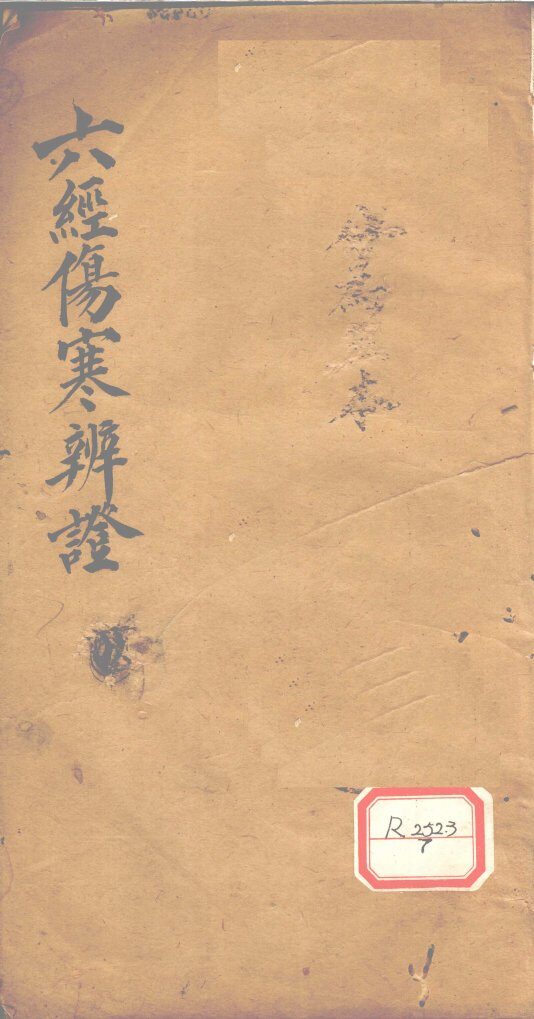 六經傷寒辨證
R 252.3
7